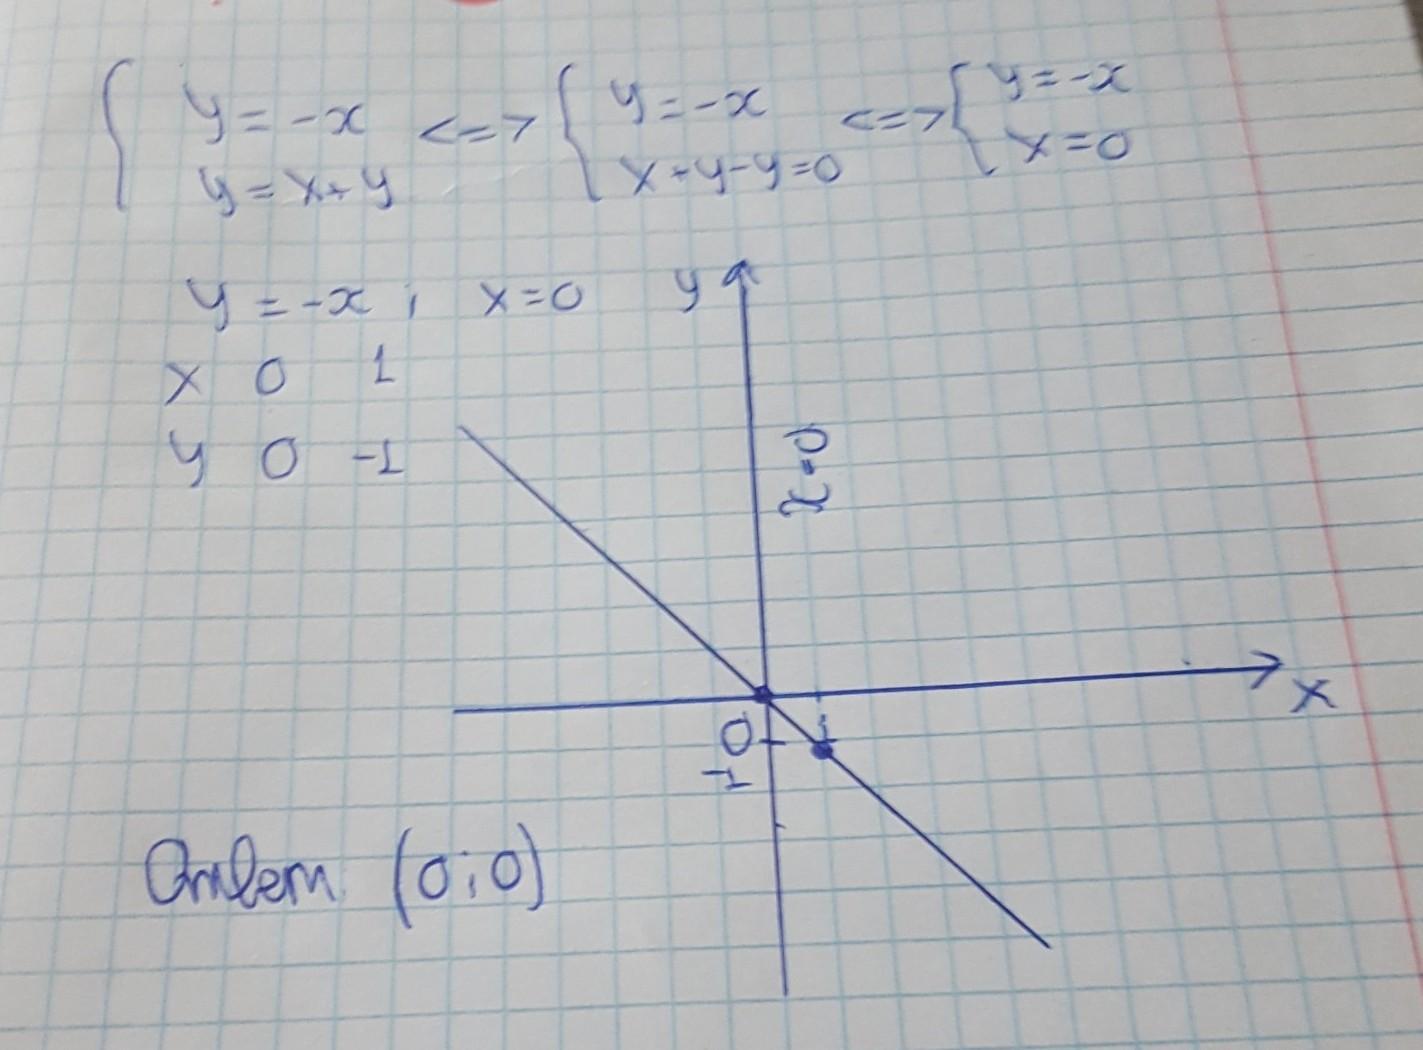 { y = -x <=> { y = -x <=> { y = -x
y = x + y x + y - y = 0 x = 0
y = -x ; x = 0 y
x 0 1
y 0 -1
x = 0
x
0 1
-1
Ответ (0;0)